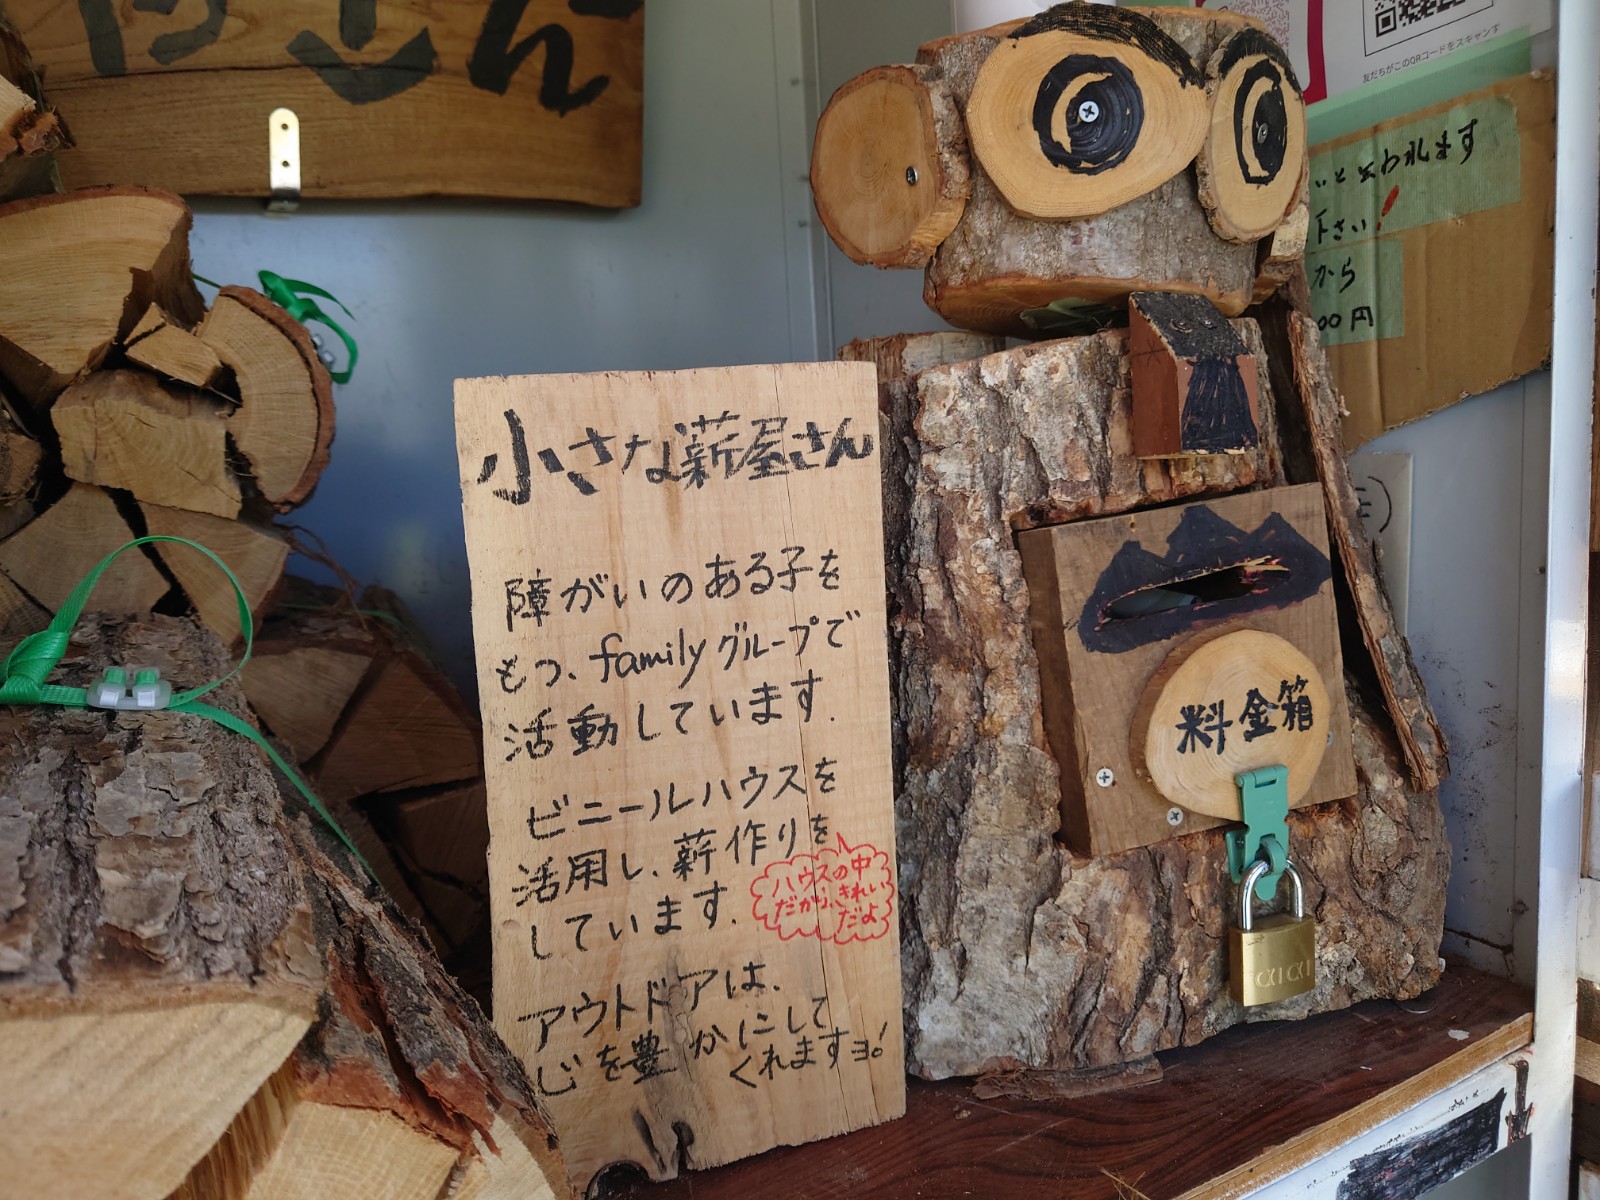 さん
友だちがこのQRコードをスキャンす
いと云われます
下さい!
から
00円
小さな薪屋さん
障がいのある子を
もつ、familyグループで
活動しています.
ビニールハウスを
活用し、薪作りを
しています.
ハウスの中
だから、きれい
だよ
アウトドアは、
心を豊かにして
くれますヨ!
料金箱